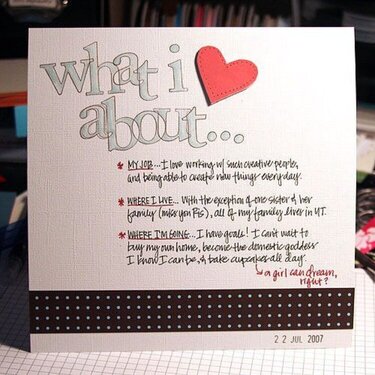 what i
about...
* MY JOB... I love working w/ such creative people,
and being able to create new things every day.
* WHERE I LIVE... With the exception of one sister & her
family (miss you R's), all of my family lives in UT.
* WHERE I'M GOING... I have goals! I can't wait to
buy my own home, become the domestic goddess
I know I can be, & bake cupcakes all day.
a girl can dream,
right?
22 JUL 2007